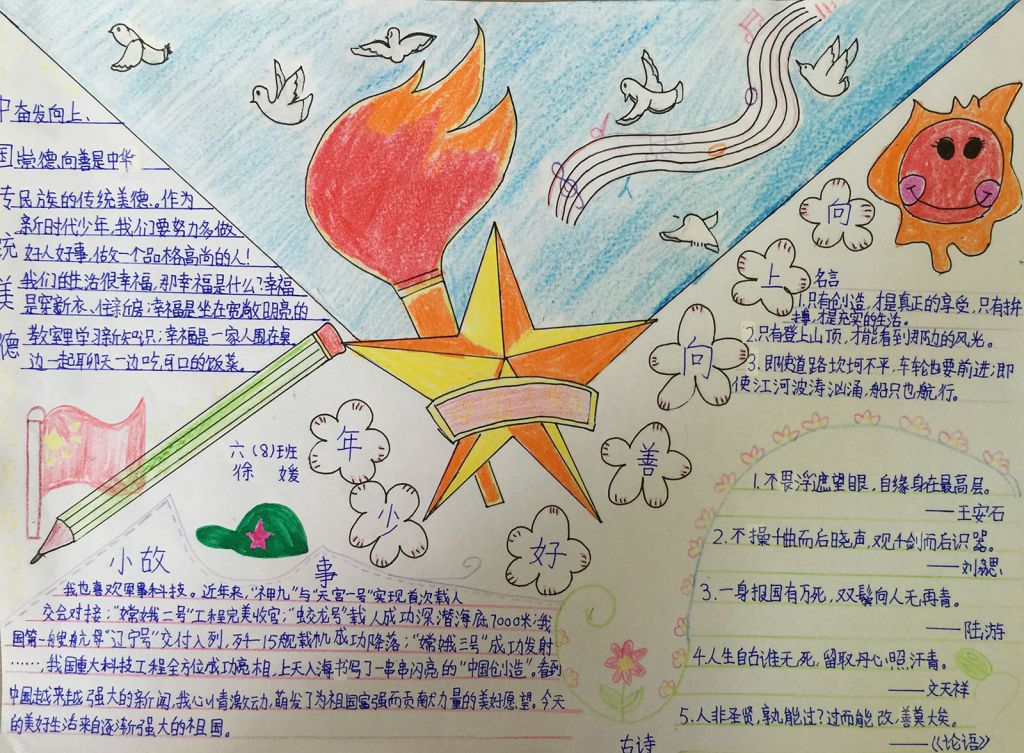 中国传统美德
奋发向上、
崇德向善是中华
民族的传统美德。作为
新时代少年，我们要努力多做
好人好事，做一个品格高尚的人！
我们的生活很幸福，那幸福是什么？幸福
是穿新衣、住新房；幸福是坐在宽敞明亮的
教室里学习新知识；幸福是一家人围在桌
边一起聊天一边吃可口的饭菜。
六（8）班
徐媛
向
上
向
善
好
小
年
名言
1.只有创造，才是真正的享受，只有拼
搏，才是充实的生活。
2.只有登上山顶，才能看到那边的风光。
3.即使道路坎坷不平，车轮也要前进；即
使江河波涛汹涌，船只也航行。
小故事
我也喜欢军事科技。近年来，“神九”与“天宫一号”实现首次载人
交会对接；“嫦娥二号”工程完美收官；“蛟龙号”载人成功深潜海底7000米；我
国第一艘航母“辽宁号”交付入列，歼-15舰载机成功降落；“嫦娥三号”成功发射
……，我国重大科技工程全方位成功亮相，上天入海书写了一串串闪亮的“中国创造”。看到
中国越来越强大的新闻，我心情激动，萌发了为祖国富强而贡献力量的美好愿望。今天
的美好生活来自逐渐强大的祖国。
1.不畏浮遮望眼，自缘身在最高层。
——王安石
2.不操千曲而后晓声，观千剑而后识器。
——刘勰
3.一身报国有万死，双鬓向人无再青。
——陆游
4.人生自古谁无死，留取丹心照汗青。
——文天祥
5.人非圣贤，孰能过？过而能改，善莫大矣。
——《论语》
古诗